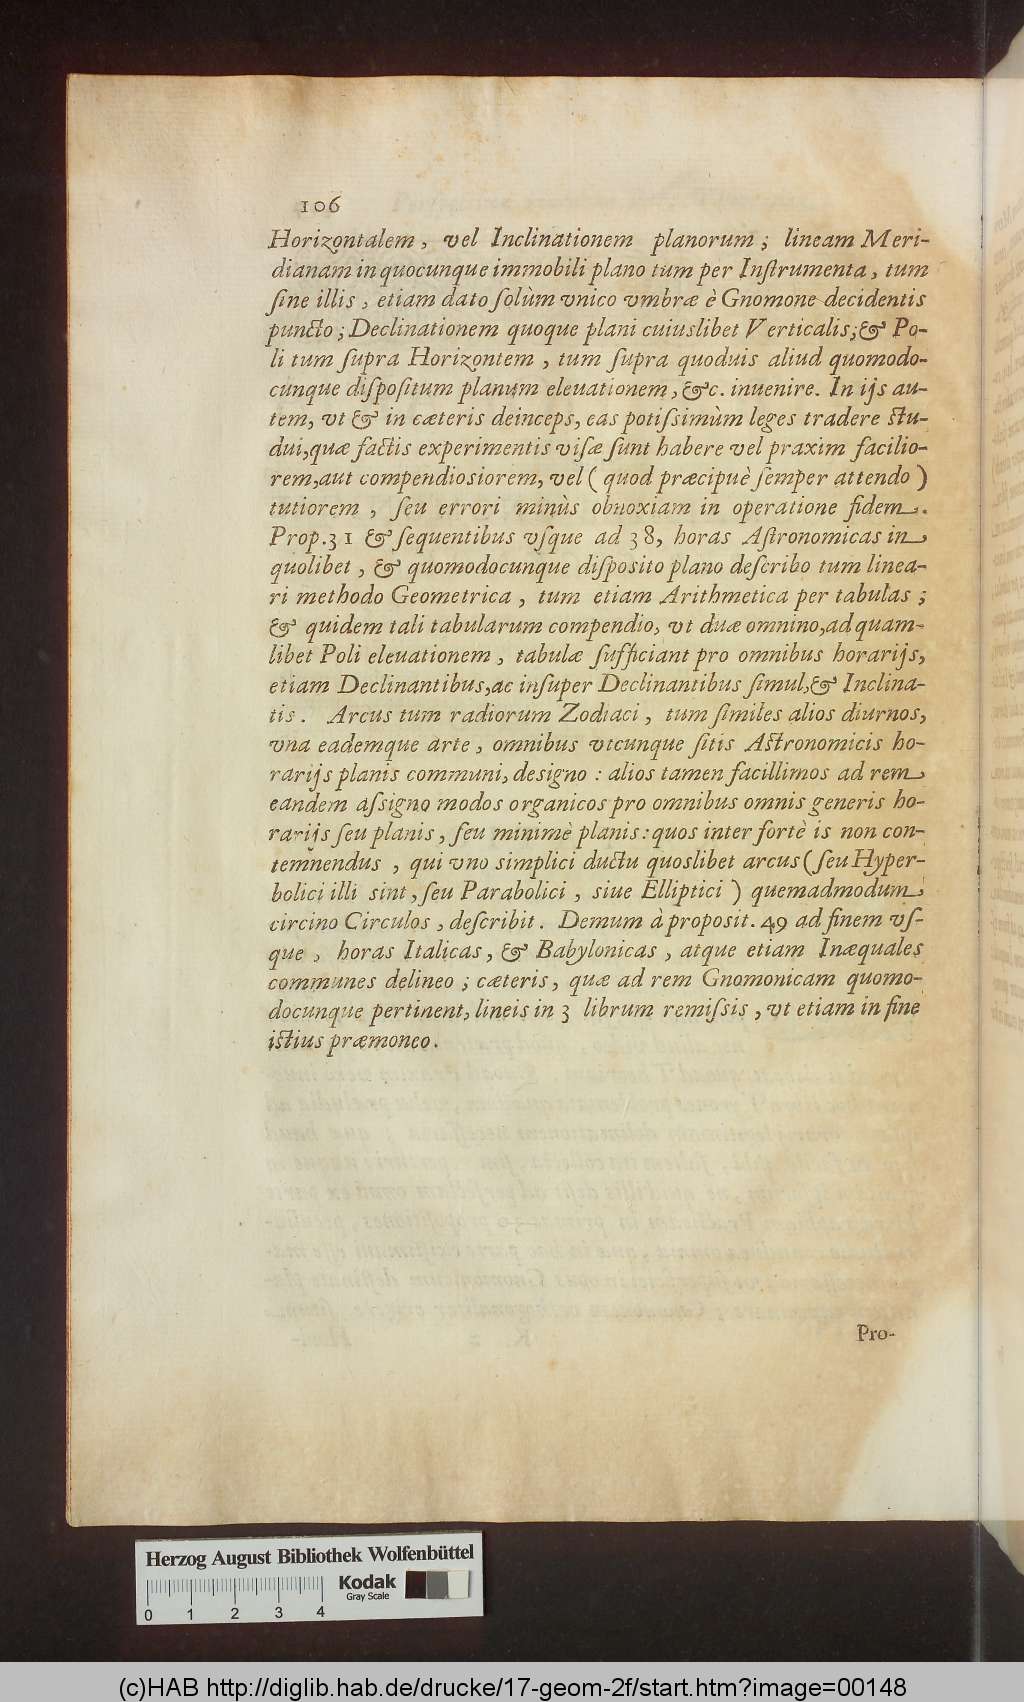 106
Horizontalem, vel Inclinationem planorum; lineam Meri-
dianam in quocunque immobili plano tum per Inſtrumenta, tum
ſine illis, etiam dato ſolùm vnico vmbræ è Gnomone decidentis
puncto; Declinationem quoque plani cuiuslibet Verticalis; & Po-
li tum ſupra Horizontem, tum ſupra quoduis aliud quomodo-
cunque diſpoſitum planum eleuationem, &c. inuenire. In ijs au-
tem, vt & in cæteris deinceps, eas potiſsimùm leges tradere ſtu-
dui, quæ factis experimentis viſæ ſunt habere vel praxim facilio-
rem, aut compendiosiorem, vel ( quod præcipuè ſemper attendo )
tutiorem, ſeu errori minùs obnoxiam in operatione fidem.
Prop. 31 & ſequentibus vſque ad 38, horas Aſtronomicas in
quolibet, & quomodocunque diſposito plano deſcribo tum linea-
ri methodo Geometrica, tum etiam Arithmetica per tabulas;
& quidem tali tabularum compendio, vt duæ omnino, ad quam-
libet Poli eleuationem, tabulæ ſufficiant pro omnibus horarijs,
etiam Declinantibus, ac inſuper Declinantibus ſimul, & Inclina-
tis. Arcus tum radiorum Zodiaci, tum ſimiles alios diurnos,
vna eademque arte, omnibus vtcunque ſitis Aſtronomicis ho-
rarijs planis communi, deſigno : alios tamen facillimos ad rem
eandem aſsigno modos organicos pro omnibus omnis generis ho-
rarijs ſeu planis, ſeu minimè planis: quos inter fortè is non con-
temnendus, qui vno simplici ductu quoslibet arcus ( ſeu Hyper-
bolici illi sint, ſeu Parabolici, siue Elliptici ) quemadmodum
circino Circulos, deſcribit. Demum à proposit. 49 ad finem vſ-
que, horas Italicas, & Babylonicas, atque etiam Inæquales
communes delineo; cæteris, quæ ad rem Gnomonicam quomo-
docunque pertinent, lineis in 3 librum remiſsis, vt etiam in fine
iſtius præmoneo.
Pro-
Herzog August Bibliothek Wolfenbüttel
Kodak
Gray Scale
0 1 2 3 4
(c)HAB http://diglib.hab.de/drucke/17-geom-2f/start.htm?image=00148